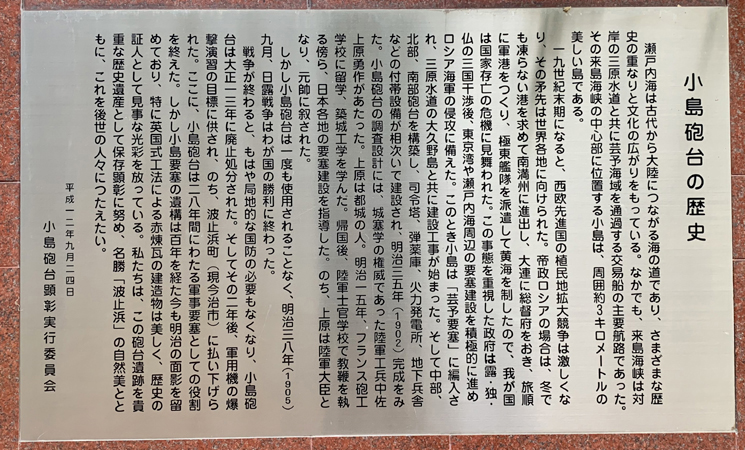 小島砲台の歴史
瀬戸内海は古代から大陸につながる海の道であり、さまざまな歴
史の重なりと文化の広がりをもっている。なかでも、来島海峡は対
岸の三原水道と共に芸予海域を通過する交易船の主要航路であった。
その来島海峡の中心部に位置する小島は、周囲約3キロメートルの
美しい島である。
一九世紀末期になると、西欧先進国の植民地拡大競争は激しくな
り、その矛先は世界各地に向けられた。帝政ロシアの場合は、冬で
も凍らない港を求めて南満州に進出し、大連に総督府をおき、旅順
に軍港をつくり、極東艦隊を派遣して黄海を制したので、我が国
は国家存亡の危機に見舞われた。この事態を重視した政府は露・独・
仏の三国干渉後、東京湾や瀬戸内海周辺の要塞建設を積極的に進め
ロシア海軍の侵攻に備えた。このとき小島は「芸予要塞」に編入さ
れ、三原水道の大久野島と共に建設工事が始まった。そして中部、
北部、南部砲台を構築し、司令塔、弾薬庫、火力発電所、地下兵舎
などの付帯設備が相次いで建設され、明治三五年(1902)完成をみ
た。小島砲台の調査設計には、城塞学の権威であった陸軍工兵中佐
上原勇作があたった。上原は都城の人。明治一五年、フランス砲工
学校に留学、築城工学を学んだ。帰国後、陸軍士官学校で教鞭を執
る傍ら、日本各地の要塞建設を指導した。のち、上原は陸軍大臣と
なり、元帥に叙された。
しかし小島砲台は一度も使用されることなく、明治三八年(1905)
九月、日露戦争はわが国の勝利に終わった。
戦争が終わると、もはや局地的な国防の必要もなくなり、小島砲
台は大正一三年に廃止処分された。そしてその二年後、軍用機の爆
撃演習の目標に供され、のち、波止浜町(現今治市)に払い下げら
れた。ここに、小島砲台は二八年間にわたる軍事要塞としての役割
を終えた。しかし小島要塞の遺構は百年を経た今も明治の面影を留
めており、特に英国式工法による赤煉瓦の建造物は美しく、歴史の
証人として見事な光彩を放っている。私たちは、この砲台遺跡を貴
重な歴史遺産として保存顕彰に努め、名勝「波止浜」の自然美とと
もに、これを後世の人々につたえたい。
平成一二年九月二四日
小島砲台顕彰実行委員会